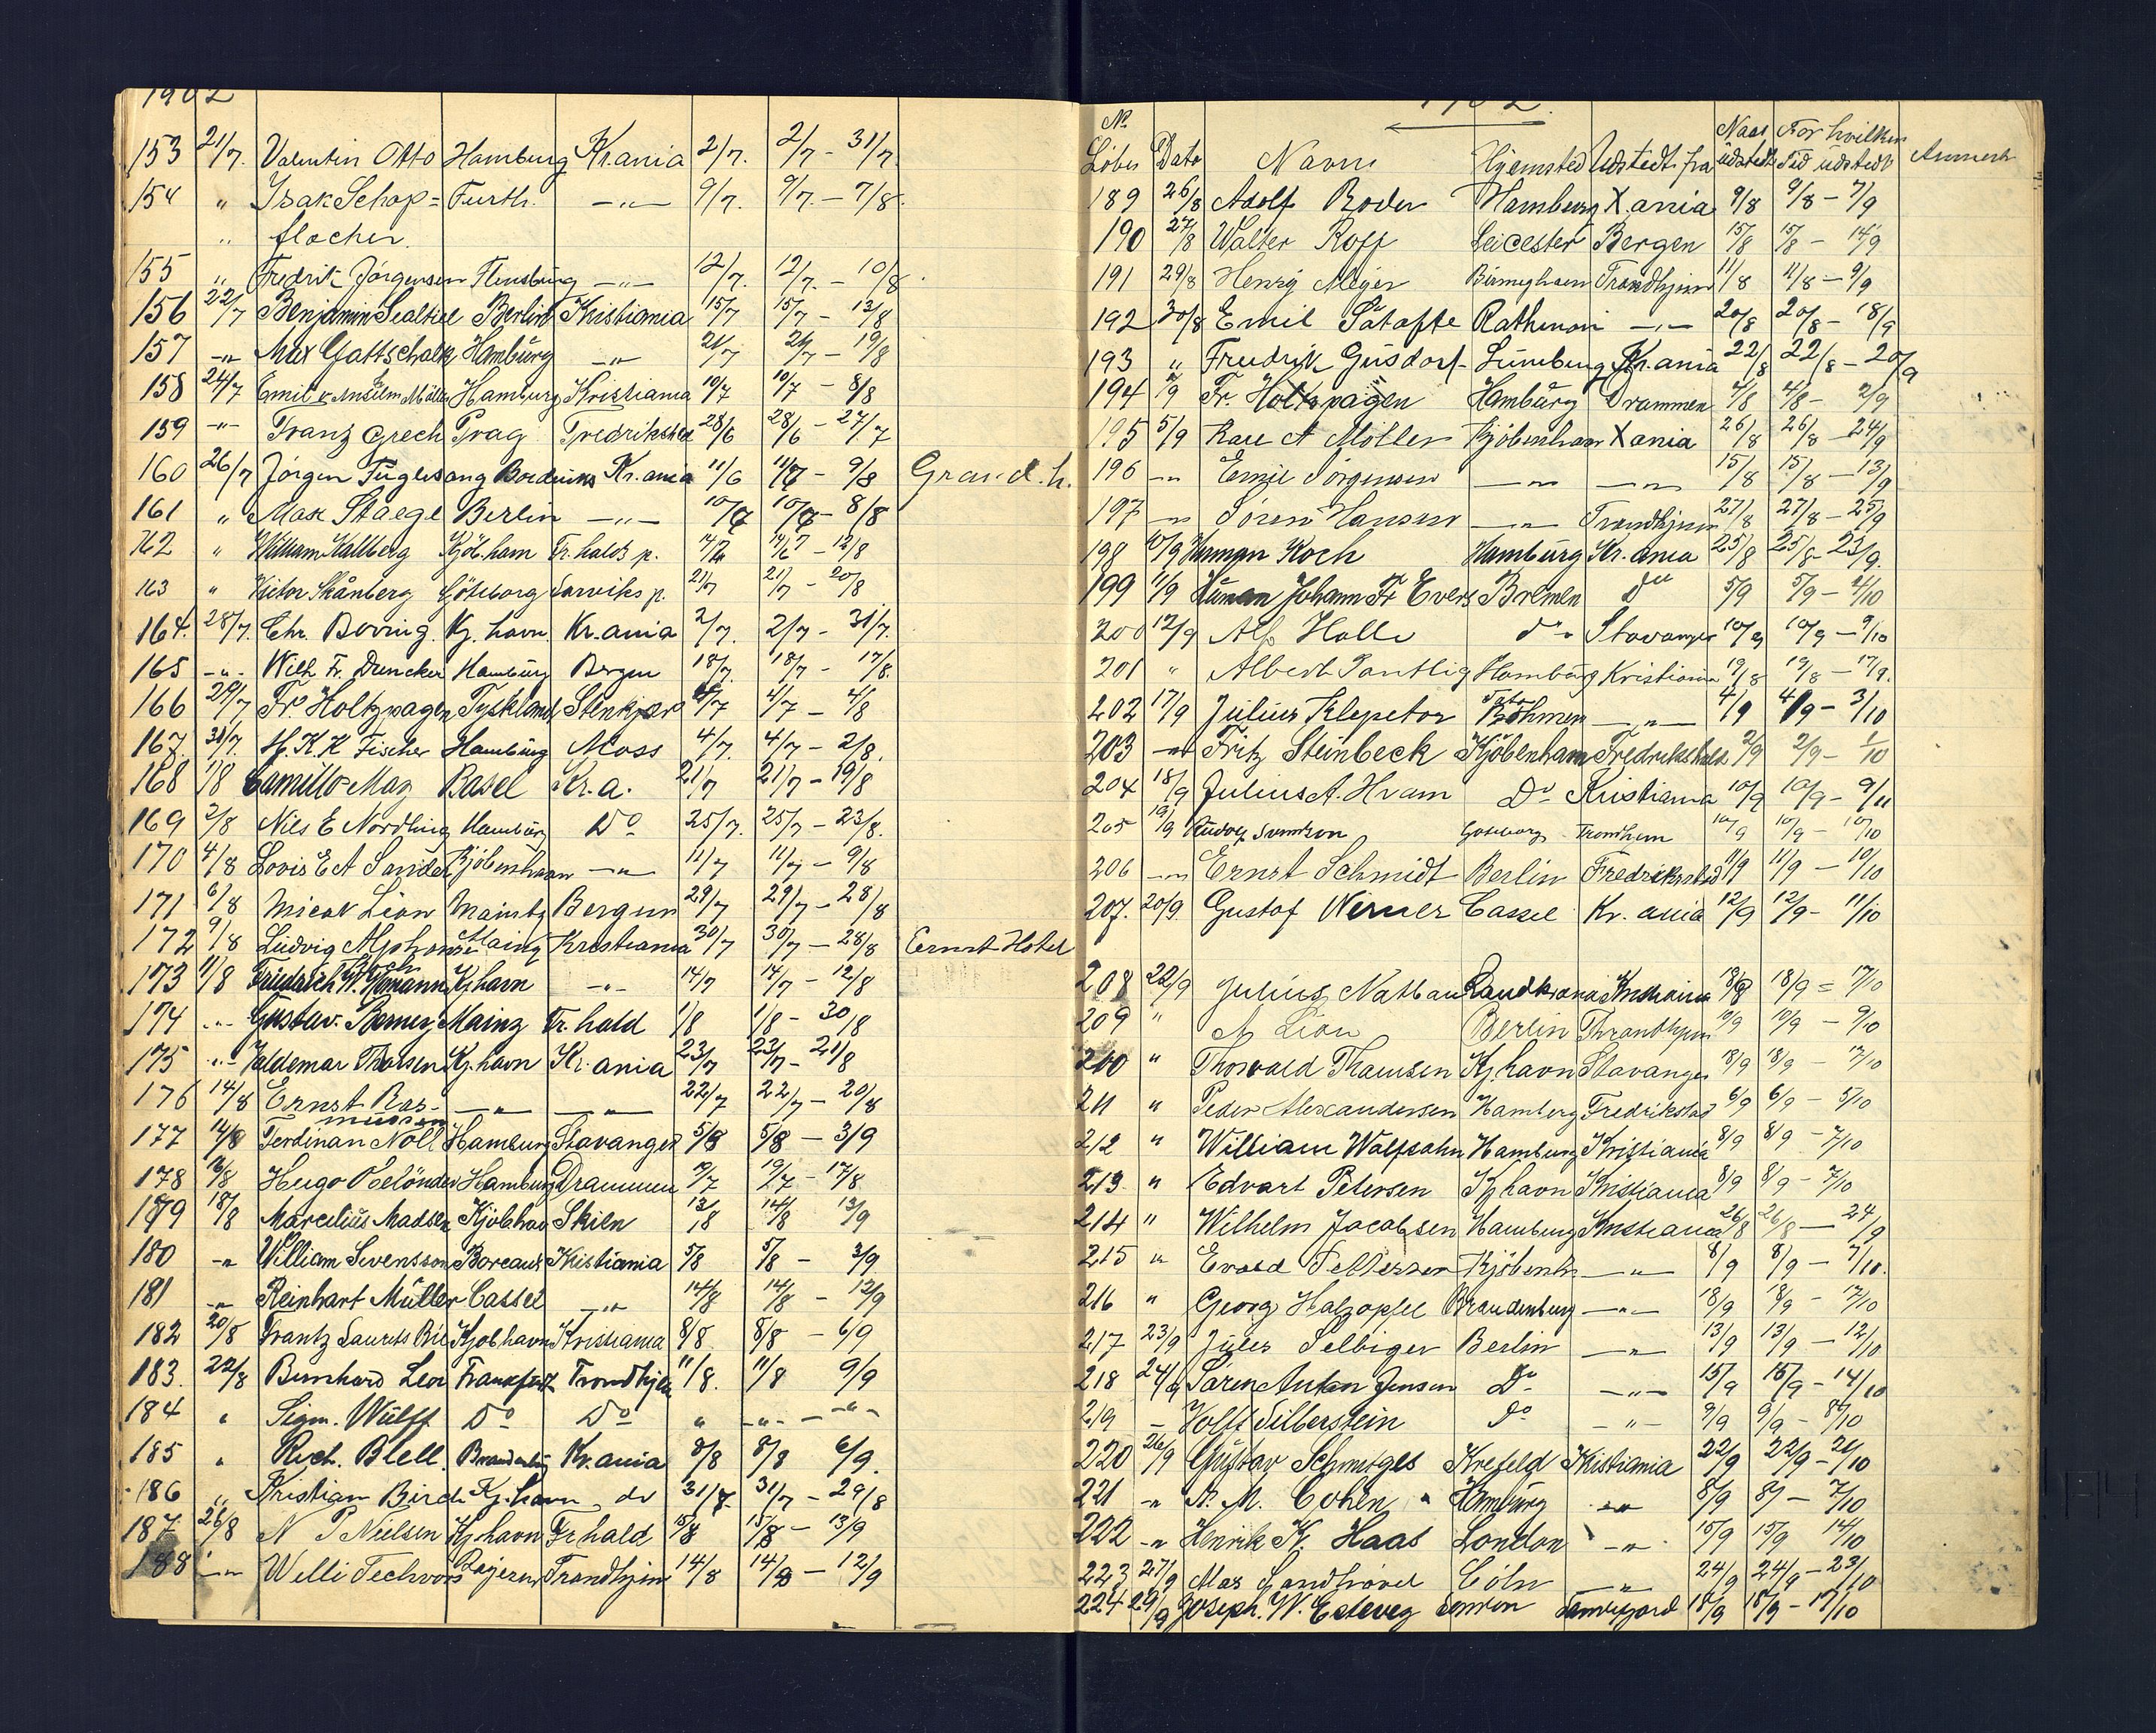 1902
153 21/7. Valentin Otto Hamburg Kr.ania 2/7. 2/7 - 31/7.
154 " Isak Schop= Furth. -"- 9/7. 9/7. - 7/8.
" flocher.
155 " Fredrik Jørgensen Flensburg -"- 12/7. 12/7. - 10/8.
156 22/7 Benjamin Sealtiel Berlin Kristiania 15/7 15/7 - 13/8
157 -"- Max Gottschalk Hamburg -"- 21/7 21/7 - 19/8
158 24/7 Emil v. Anselm Möller Hamburg Kristiania 10/7 10/7 - 8/8
159 -"- Franz Grech Prag Fredrikshld 28/6 28/6 - 27/7
160 26/7 Jørgen Fuglesang Kr.ania 11/6 11/7 - 9/8 Grand. h.
161 " Max Staege Berlin -"- 10/7 10/7 - 8/8
162 " William Kallberg Kjöb.ham Fr.halds p. 14/7 - 12/8
163 " Victor Skånberg Göteborg Larviks p. 21/7 21/7 - 20/8
164. 28/7. Chr. Boving Kj.havn Kr.ania 2/7. 2/7 - 31/7.
165 -"- Wilh Fr. Duncker Hamburg Bergen 18/7. 18/7 - 17/8.
166 29/7 Fr. Holtzpagen Tyskland Stenkjær 4/7 4/7 - 4/8
167. 31/7. H. K. K Fischer Hamburg Moss 4/7. 4/7 - 2/8.
168 1/8 Camillo May Basel Kr.a. 21/7 21/7 - 19/8
169 2/8 Nils E Nordling Hamburg Do 25/7. 25/7 - 23/8.
170 4/8 Lovis E A Sander Kjöbenhavn -"- 11/7 11/7 - 9/8
171 6/8 Micat Lion Maintz Bergen 29/7 29/7 - 28/8
172 9/8 Ludvig Alphonse Mainz Kristiania 30/7 30/7 - 28/8 Ernst Hotel
173 11/8 Friedrich W. Kj.havn -"- 14/7 14/7 - 12/8
174 -"- Gustav. Barney Mainz Fr.hald 1/8 1/8 - 30/8
175 -"- Valdemar Thorsen Kj.havn Kr.ania 23/7 23/7 - 21/8
176 14/8 Ernst Ras- -"- -"- 22/7 22/7 - 20/8
mussen
177 14/8 Ferdinan Noll Hamburg Stavanger 5/8 5/8 - 3/9
178 16/8 Hugo Hamburg Drammen 19/7 19/7 - 17/8
179 18/8 Marcelius Madsen Kjöbhav Skien 13/8 14/8 13/9
180 -"- William Svensson Boreaux Kristiania 5/8 5/8 - 3/9
181 -"- Reinhart Müller Cassel -"- 14/8 14/8 - 12/9
182 20/8 Frantz Laurits Kjobhavn Kristiania 8/8 8/8 - 6/9
183. 22/8 Bernhard Levi Frankfurt Trondhjem 11/8. 11/8 9/9
184 " Sigm. Wulff Do Do " -"- - -"-
185 " Rich. Blell. Brandenburg Kr.ania 8/8 8/8 6/9.
186 " Kristian Birch Kj.havn do 31/7. 31/7 - 29/8
187 26/8 N P Nielsen Kj.havn Fr hald 15/8 15/8 - 13/9
188 -"- Willi Techvors Bajern Trondhjem 14/8 14/8 - 12/9
1902.
No. Løber Dato Navn Hjemsted Udstedt fra Naar udstedt For hvilken Tid udstedt Anmerk
189 26/8 Adolf Roder Hamburg X.ania 9/8 9/8 - 7/9
190 27/8 Walter Roff Leicester Bergen 15/8 15/8 - 14/9
191 29/8 Henry Meyer Birmegham Trondhjem 11/8 11/8 - 9/9
192 30/8 Emil Rathenow -"- 20/8 20/8 - 18/9
193 " Fredrik Gusdorf Lüneburg Kr.ania 22/8 22/8 - 20/9
194 2/9 Fr. Holtzpagen Hamburg Drammen 4/8 4/8 - 2/9
195 5/9 A Möller Kjöbenhavn Xania 26/8 26/8 - 24/9
196 -"- Emil Jörgensen -"- -"- 15/8 15/8 - 13/9
197 -"- Sören Hansen -"- Trondhjem 27/8 27/8 - 25/9
198 10/9 Herman Koch Hamburg Kr.ania 25/8 25/8 - 23/9.
199 11/9 Johann Fr Evers Bremen Do 5/9 5/9 - 4/10
200 12/9 Alf Halle do Stavanger 10/9 10/9 - 9/10
201 " Albert Pantlig Hamburg Kristiania 19/8 19/8 - 17/9.
202 17/9 Julius Klepetar Böhmen -"- 4/9 4/9 - 3/10
203 -"- Fritz Steinbeck Kjöbenhavn Fredrikshald 2/9 2/9 - 1/10
204 18/9 Julius A. Hvam Do Kristiania 10/9 10/9 - 9/11
205 19/9 Rudolf Svendson Goteborg Trondhem 10/9 10/9 - 10/10
206 -"- Ernst Schmidt Berlin Fredrikstad 11/9 11/9 - 10/10
207. 20/9. Gustof Werner Cassel Kr.ania 12/9 12/9 - 11/10
208 22/9 Julius Nathan Landkrona Kristiania 18/9 18/9 = 17/10
209 " A Lion Berlin Throndhjem 10/9 10/9 - 9/10
210 " Thorvald Thamsen Kj.havn Stavanger 18/9 18/9 - 17/10
211 " Peder Alexandersen Hamberg Fredrikstad 6/9 6/9 - 5/10
212 " William Wolfsohn Hamburg Kristiania 8/9 8/9 - 7/10
213 " Edvart Petersen Kjhavn Kristiania 8/9 8/9 - 7/10
214 " Wilhelm Jacobsen Hamburg Kristiania 26/8 26/8 - 24/9
215 " Evald Pettersen Kjöbenh -"- 8/9 8/9 - 7/10.
216 " Georg Holzapfel Brandenburg -"- 18/9 18/9 - 17/10
217 23/9 Jules Selbiger Berlin -"- 13/9 13/9 - 12/10
218 24/9 Sören Anton Jensen Do -"- 15/9 15/9 - 14/10
219 - Wolff Silberstein do -"- 9/9 9/9 - 8/10
220 26/9 Gustav Schmitges Krefeld Kristiania 22/9 22/9 - 21/10
221 -"- A. M. Cohen " Hamburg -"- 8/9 8/9 - 7/10
222 -"- Henrik K. Haas London -"- 15/9 15/9 14/10
223 27/9 Max Sandhövel Cöln -"- 24/9 24/9 - 23/10
224 29/9 Joseph. W. Estevez London Sandefjord 18/9 18/9 - 17/10